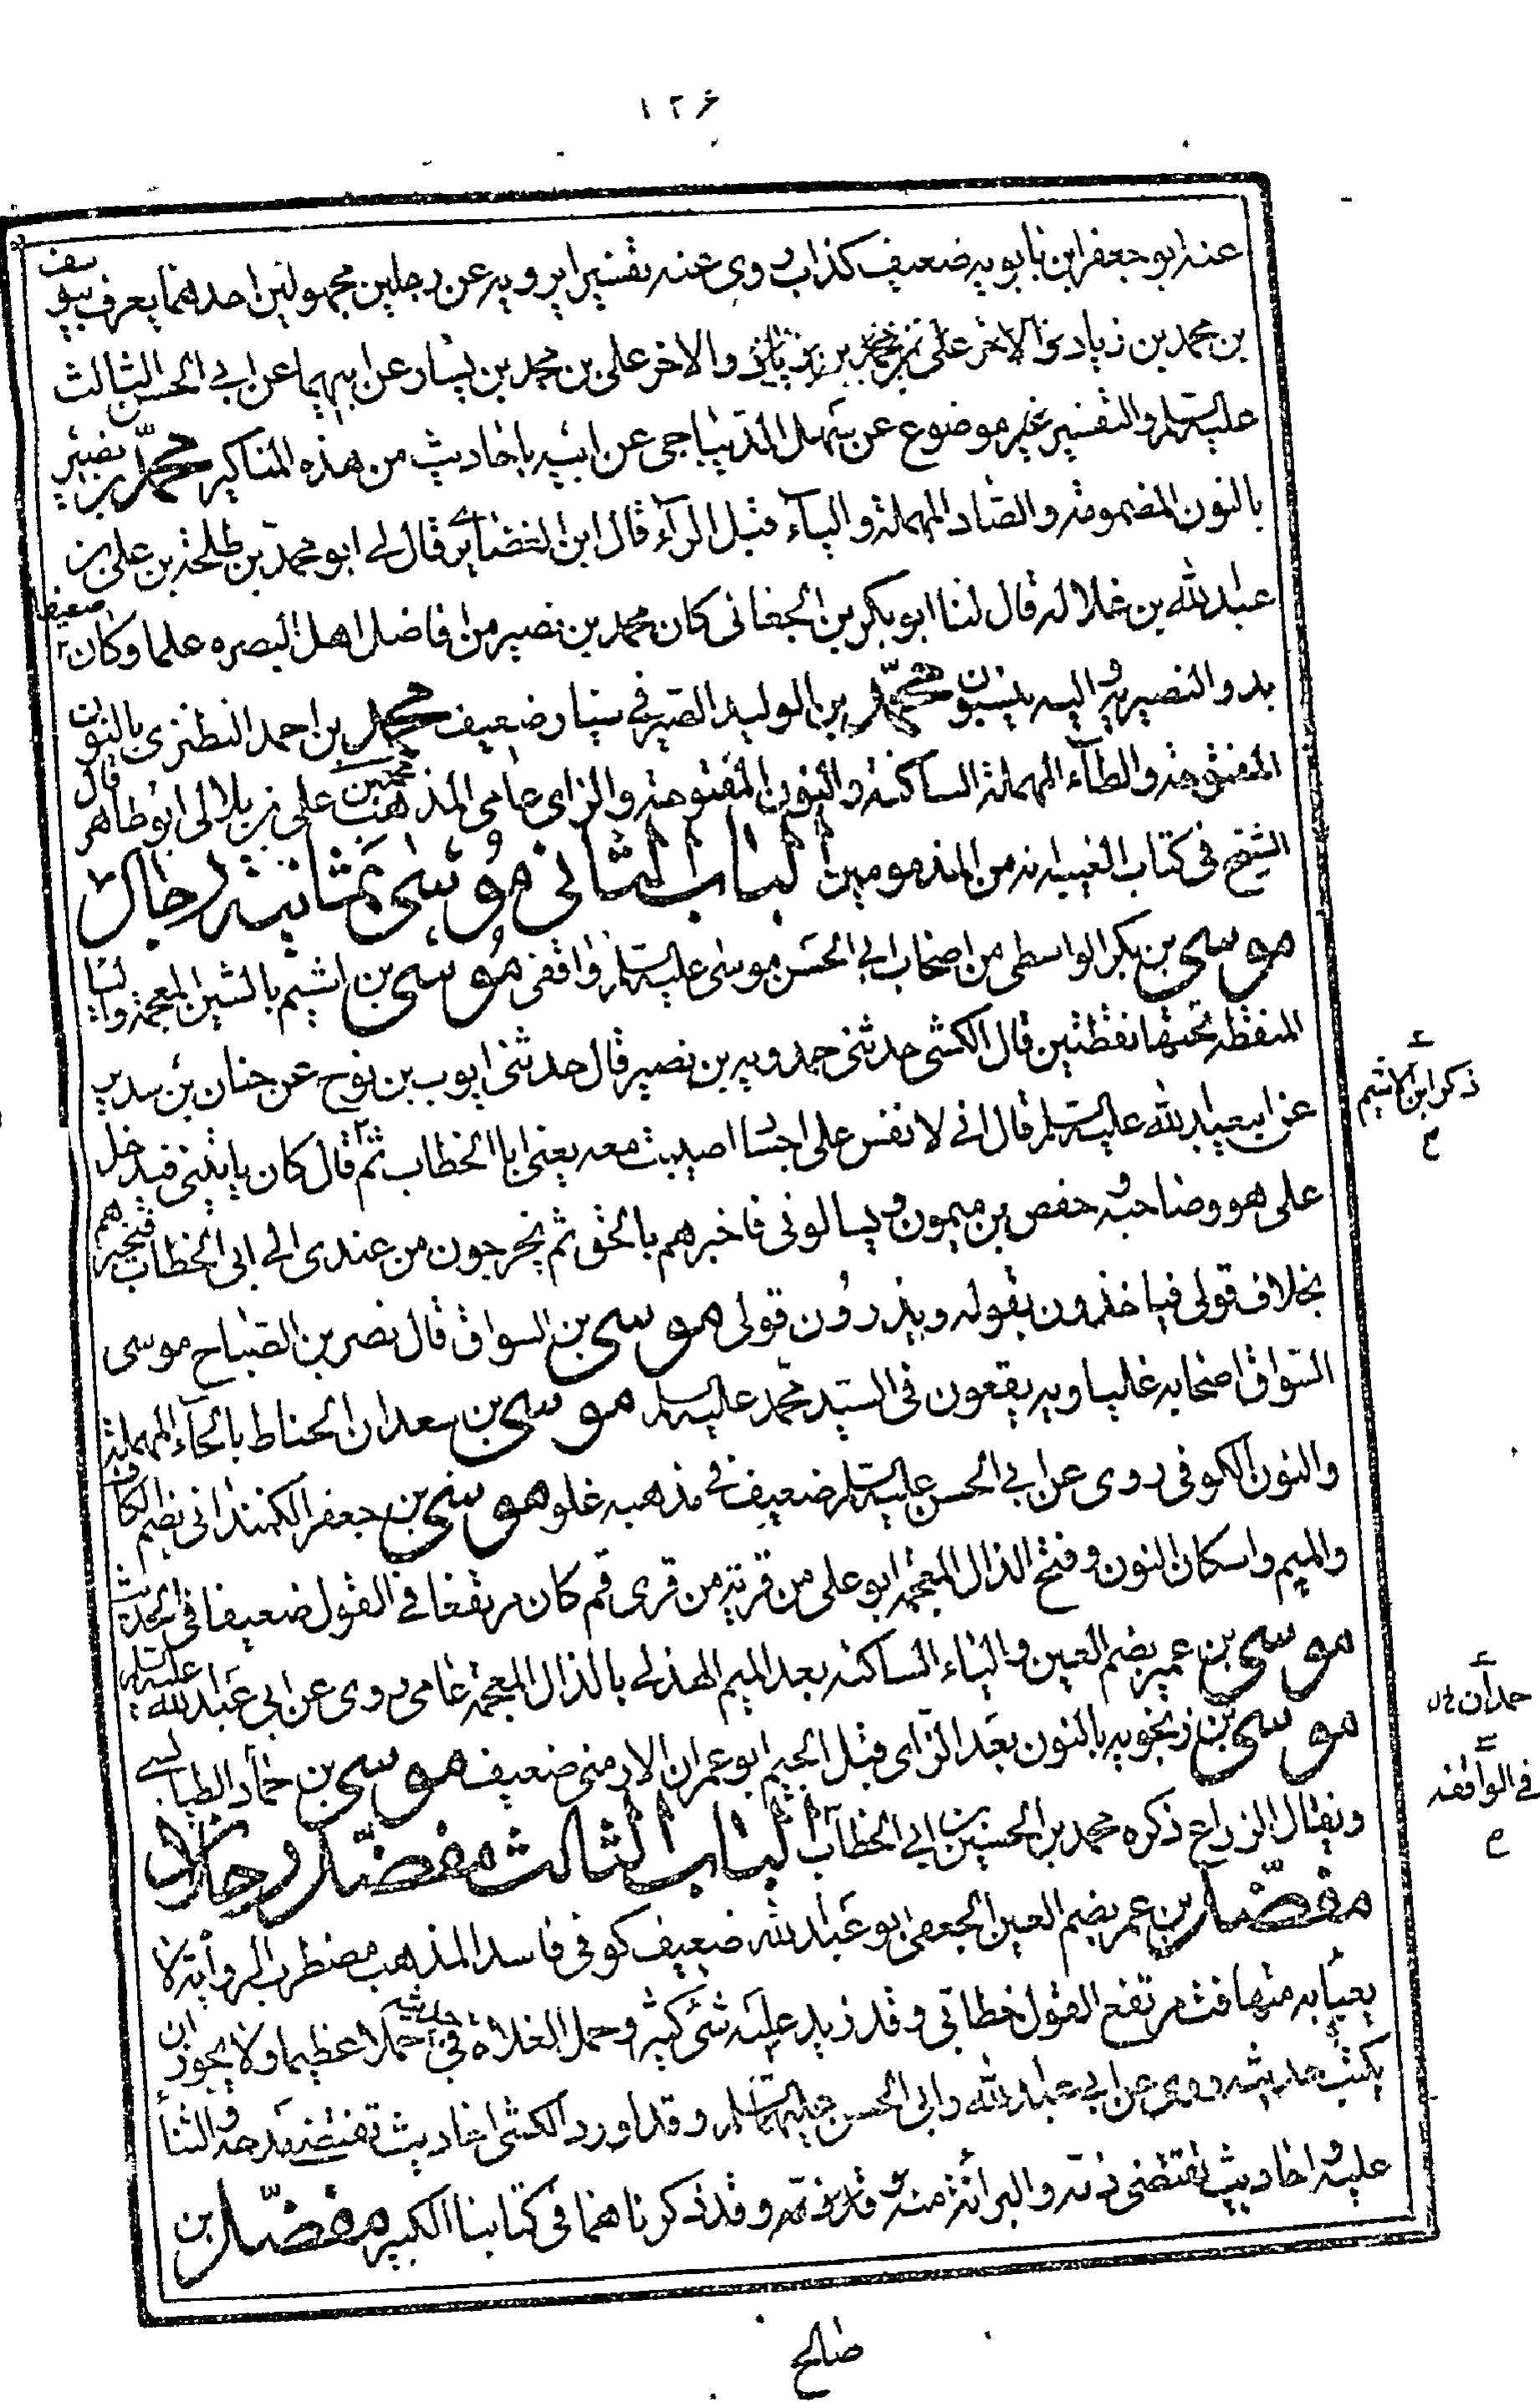 ١٢۶
عنه ابو جعفر ابن بابويه ضعيف كذاب روى عنه تفسيرا يرويه عن رجلين مجهولين احدهما يعرف بيوسف
بن محمد بن زياد والاخر على بن محمد بن يسار عن ابيهما عن ابى الحسن الثالث
عليه السلام والتفسير موضوع عن سهل الديباجى عن ابيه باحاديث من هذه المناكير محمد بن نصير
بالنون المضمومة والصاد المهملة والياء قبل الراء قال ابن الغضايرى قال لى ابو محمد بن طلحة بن على بن
عبد الله بن غلاله قال لنا ابو بكر بن الجعابى كان محمد بن نصير من افاضل اهل البصره علما وكان ضعيفا
بدو النصيرية واليه ينسبون محمد بن الوليد الصيرفى شباب ضعيف محمد بن احمد النطنزى بالنون
المفتوحة والطاء المهملة الساكنة والنون المفتوحة والزاى عامى المذهب محمد بن على بن بلال ابو طاهر قال
الشيخ فى كتاب الغيبة انه من المذمومين الباب الثانى موسى ثمانية رجال
موسى بن بكر الواسطى من اصحاب ابى الحسن موسى عليه السلام واقفى موسى بن اشيم بالشين المعجمة والياء
المنقطة تحتها نقطتين قال الكشى حدثنى حمدويه بن نصير قال حدثنى ايوب بن نوح عن حنان بن سدير
ذكر ابن الاشيم
عن ابيعبد الله عليه السلام قال انى لا نفس على اجساد اصيبت معه يعنى ابا الخطاب ثم قال كان ياتينى فيدخل
على هو وصاحبه حفص بن ميمون ويسالونى فاخبرهم بالحق ثم يخرجون من عندى الى ابى الخطاب فيخبرهم
بخلاف قولى فياخذون بقوله ويذرون قولى موسى بن السواق قال نصر بن الصباح موسى
السواق اصحابه علياويه يقعون فى السيد محمد عليه السلام موسى بن سعدان الحناط بالحاء المهملة
والنون الكوفى روى عن ابى الحسن عليه السلام ضعيف فى مذهبه غلو موسى بن جعفر الكمندانى بضم الكاف
والميم واسكان النون وفتح الذال المعجمه ابو على من قرية من قرى قم كان مرتفعا فى القول ضعيفا فى الحديث
موسى بن عمير بضم العين والياء الساكنه بعد الميم الهذلى بالذال المعجمه عامى روى عن ابى عبد الله عليه السلام
حمدان
موسى بن زنجويه بالنون بعد الزاى قبل الجيم ابو عمران الارمنى ضعيف موسى بن حماد الطيالسى
فى الواقفه
ويقال الزراع ذكره محمد بن الحسين بن ابى الخطاب الباب الثالث مفضل رجلان
مفضل بن عمر بضم العين الجعفى ابو عبد الله ضعيف كوفى فاسد المذهب مضطرب الرواية لا
يعبأ به متهافت مرتفع القول خطابى وقد زيد عليه شئ كثير وحمل الغلاة فى حديثه حملا عظيما ولا يجوز ان
يكتب حديثه روى عن ابى عبد الله وابى الحسن عليهما السلام وقد اورد الكشى احاديث تقتضى مدحه والثناء
عليه واحاديث تقتضى ذمه والبرائة منه وقد ذكرناهما فى كتابنا الكبير مفضل بن
صالح